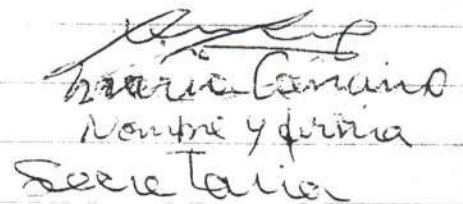 Maria Cansino
Nombre y firma
Secretaria